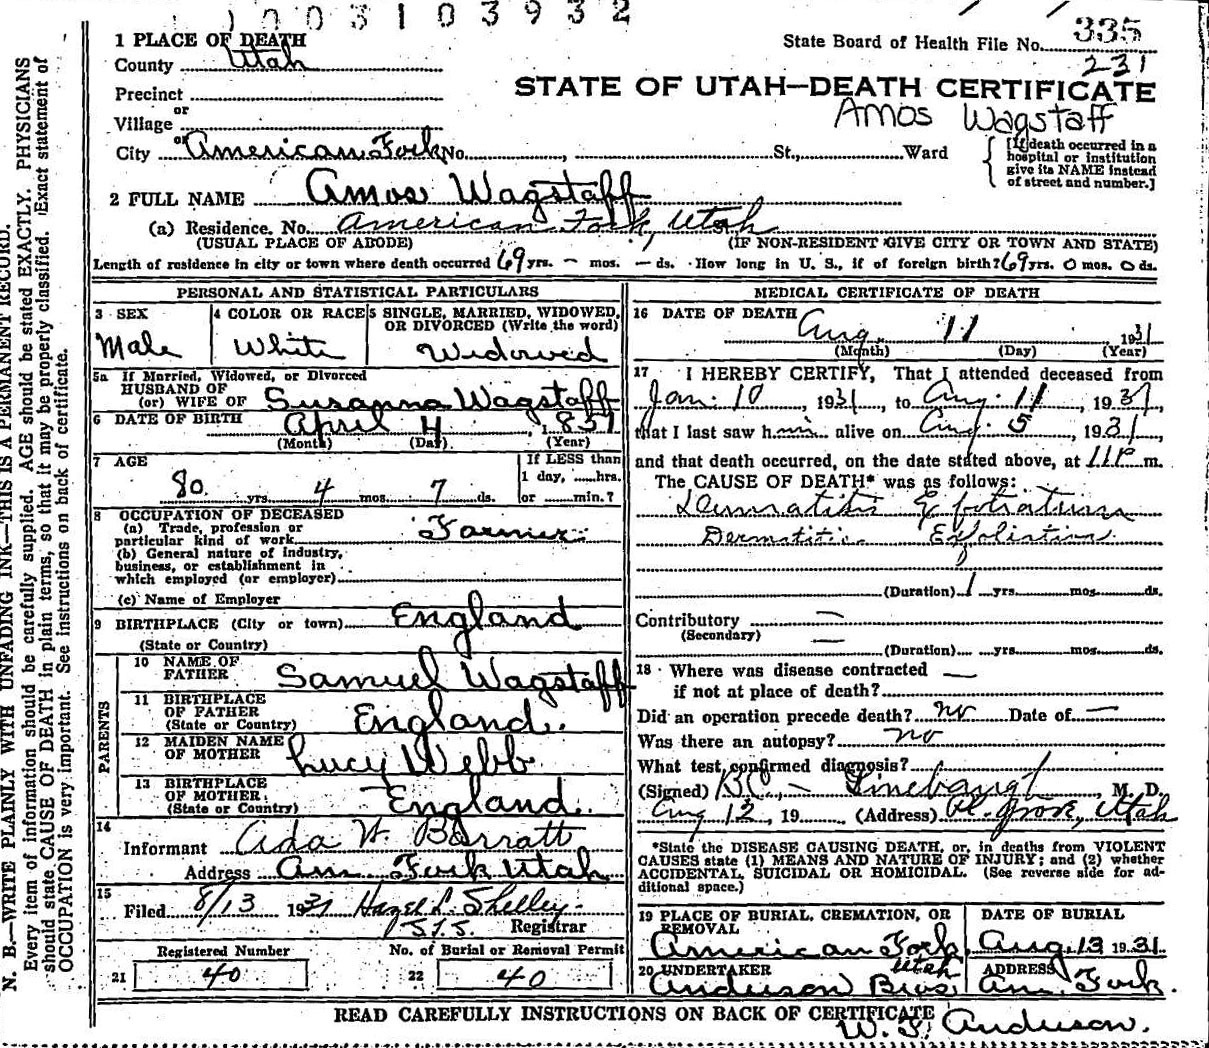 1003103932
1 PLACE OF DEATH
County Utah
State Board of Health File No. 335
231
Precinct
or
Village
or
City American Fork No. , St., Ward
STATE OF UTAH—DEATH CERTIFICATE
Amos Wagstaff
[If death occurred in a
hospital or institution
give its NAME instead
of street and number.]
2 FULL NAME Amos Wagstaff
(a) Residence. No. American Fork, Utah
(USUAL PLACE OF ABODE) (IF NON-RESIDENT GIVE CITY OR TOWN AND STATE)
Length of residence in city or town where death occurred 69 yrs. – mos. – ds. How long in U. S., if of foreign birth? 69 yrs. 0 mos. 0 ds.
PERSONAL AND STATISTICAL PARTICULARS
3 SEX
Male
4 COLOR OR RACE
White
5 SINGLE, MARRIED, WIDOWED,
OR DIVORCED (Write the word)
Widowed
5a If Married, Widowed, or Divorced
HUSBAND OF
(or) WIFE OF Susanna Wagstaff
6 DATE OF BIRTH April 4, 1851
(Month) (Day) (Year)
7 AGE
80 yrs. 4 mos. 7 ds.
If LESS than
1 day, ......hrs.
or ......min.?
8 OCCUPATION OF DECEASED
(a) Trade, profession or
particular kind of work Farmer
(b) General nature of industry,
business, or establishment in
which employed (or employer)
(c) Name of Employer
9 BIRTHPLACE (City or town) England
(State or Country)
PARENTS
10 NAME OF
FATHER Samuel Wagstaff
11 BIRTHPLACE
OF FATHER
(State or Country) England.
12 MAIDEN NAME
OF MOTHER Lucy Webb
13 BIRTHPLACE
OF MOTHER.
(State or Country) England.
14
Informant Ada W. Barratt
Address Am. Fork Utah
15
Filed 8/13 1931 Hazel L. Shelley
Registrar
Registered Number
21 40
No. of Burial or Removal Permit
22 40
MEDICAL CERTIFICATE OF DEATH
16 DATE OF DEATH Aug. 11 1931
(Month) (Day) (Year)
17 I HEREBY CERTIFY, That I attended deceased from
Jan. 10, 1931, to Aug. 11, 1931,
that I last saw him alive on Aug. 5, 1931,
and that death occurred, on the date stated above, at 11P m.
The CAUSE OF DEATH* was as follows:
Dermatitis Exfoliativa
(Duration) 1 yrs. mos. ds.
Contributory —
(Secondary) —
(Duration) yrs. mos. ds.
18 Where was disease contracted —
if not at place of death?
Did an operation precede death? no Date of —
Was there an autopsy? no
What test confirmed diagnosis?
(Signed) B.C. Linebaugh, M. D.
Aug 12, 19 (Address) Pl. Grove, Utah
*State the DISEASE CAUSING DEATH, or, in deaths from VIOLENT
CAUSES state (1) MEANS AND NATURE OF INJURY; and (2) whether
ACCIDENTAL, SUICIDAL OR HOMICIDAL. (See reverse side for ad-
ditional space.)
19 PLACE OF BURIAL, CREMATION, OR
REMOVAL
American Fork, Utah
DATE OF BURIAL
Aug. 13 1931
20 UNDERTAKER
Anderson Bros
ADDRESS
Am. Fork.
READ CAREFULLY INSTRUCTIONS ON BACK OF CERTIFICATE
W. F. Anderson.
N. B.—WRITE PLAINLY WITH UNFADING INK—THIS IS A PERMANENT RECORD.
Every item of information should be carefully supplied. AGE should be stated EXACTLY. PHYSICIANS
should state CAUSE OF DEATH in plain terms, so that it may be properly classified. Exact statement of
OCCUPATION is very important. See instructions on back of certificate.